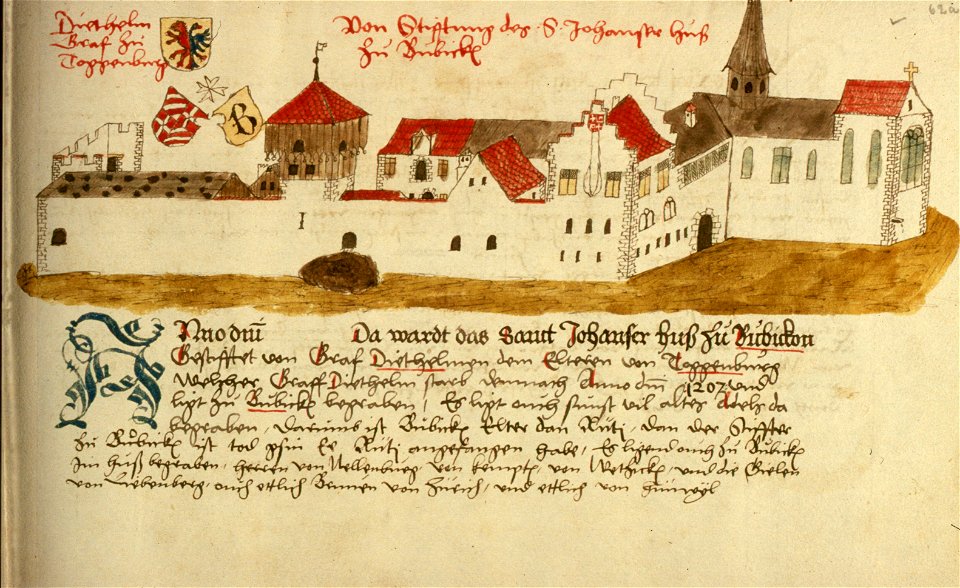 62a
Diethelm
Graf zu
Toppenburg
Von Stifftung des S. Johanser huß
zu Bubickh
B
I
Anno dm̄ Da wardt das Sanct Johanser huß zu Bubickon
Gestifftet von Graf Diethelmen dem Elteren von Toppenburg
Welcher Graff Diethelm starb darnach Anno dm̄ 1207 und
ligt zu Bubickh begraben, Es ligt ouch sunst vil altes Adels da
begraben, Darumb ist Bubickh Elter dan Rüti, dan der Stiffter
zu Bubickh ist tod gsin Ee Rüti angefangen habe, Es ligend ouch zu Bubickh
Im huß begraben, herren von Nellenburg, von kempte, von Wetzickh, und die Gielen
von Liebenberg, ouch ettlich von Zürich, und ettlich von hünwyl